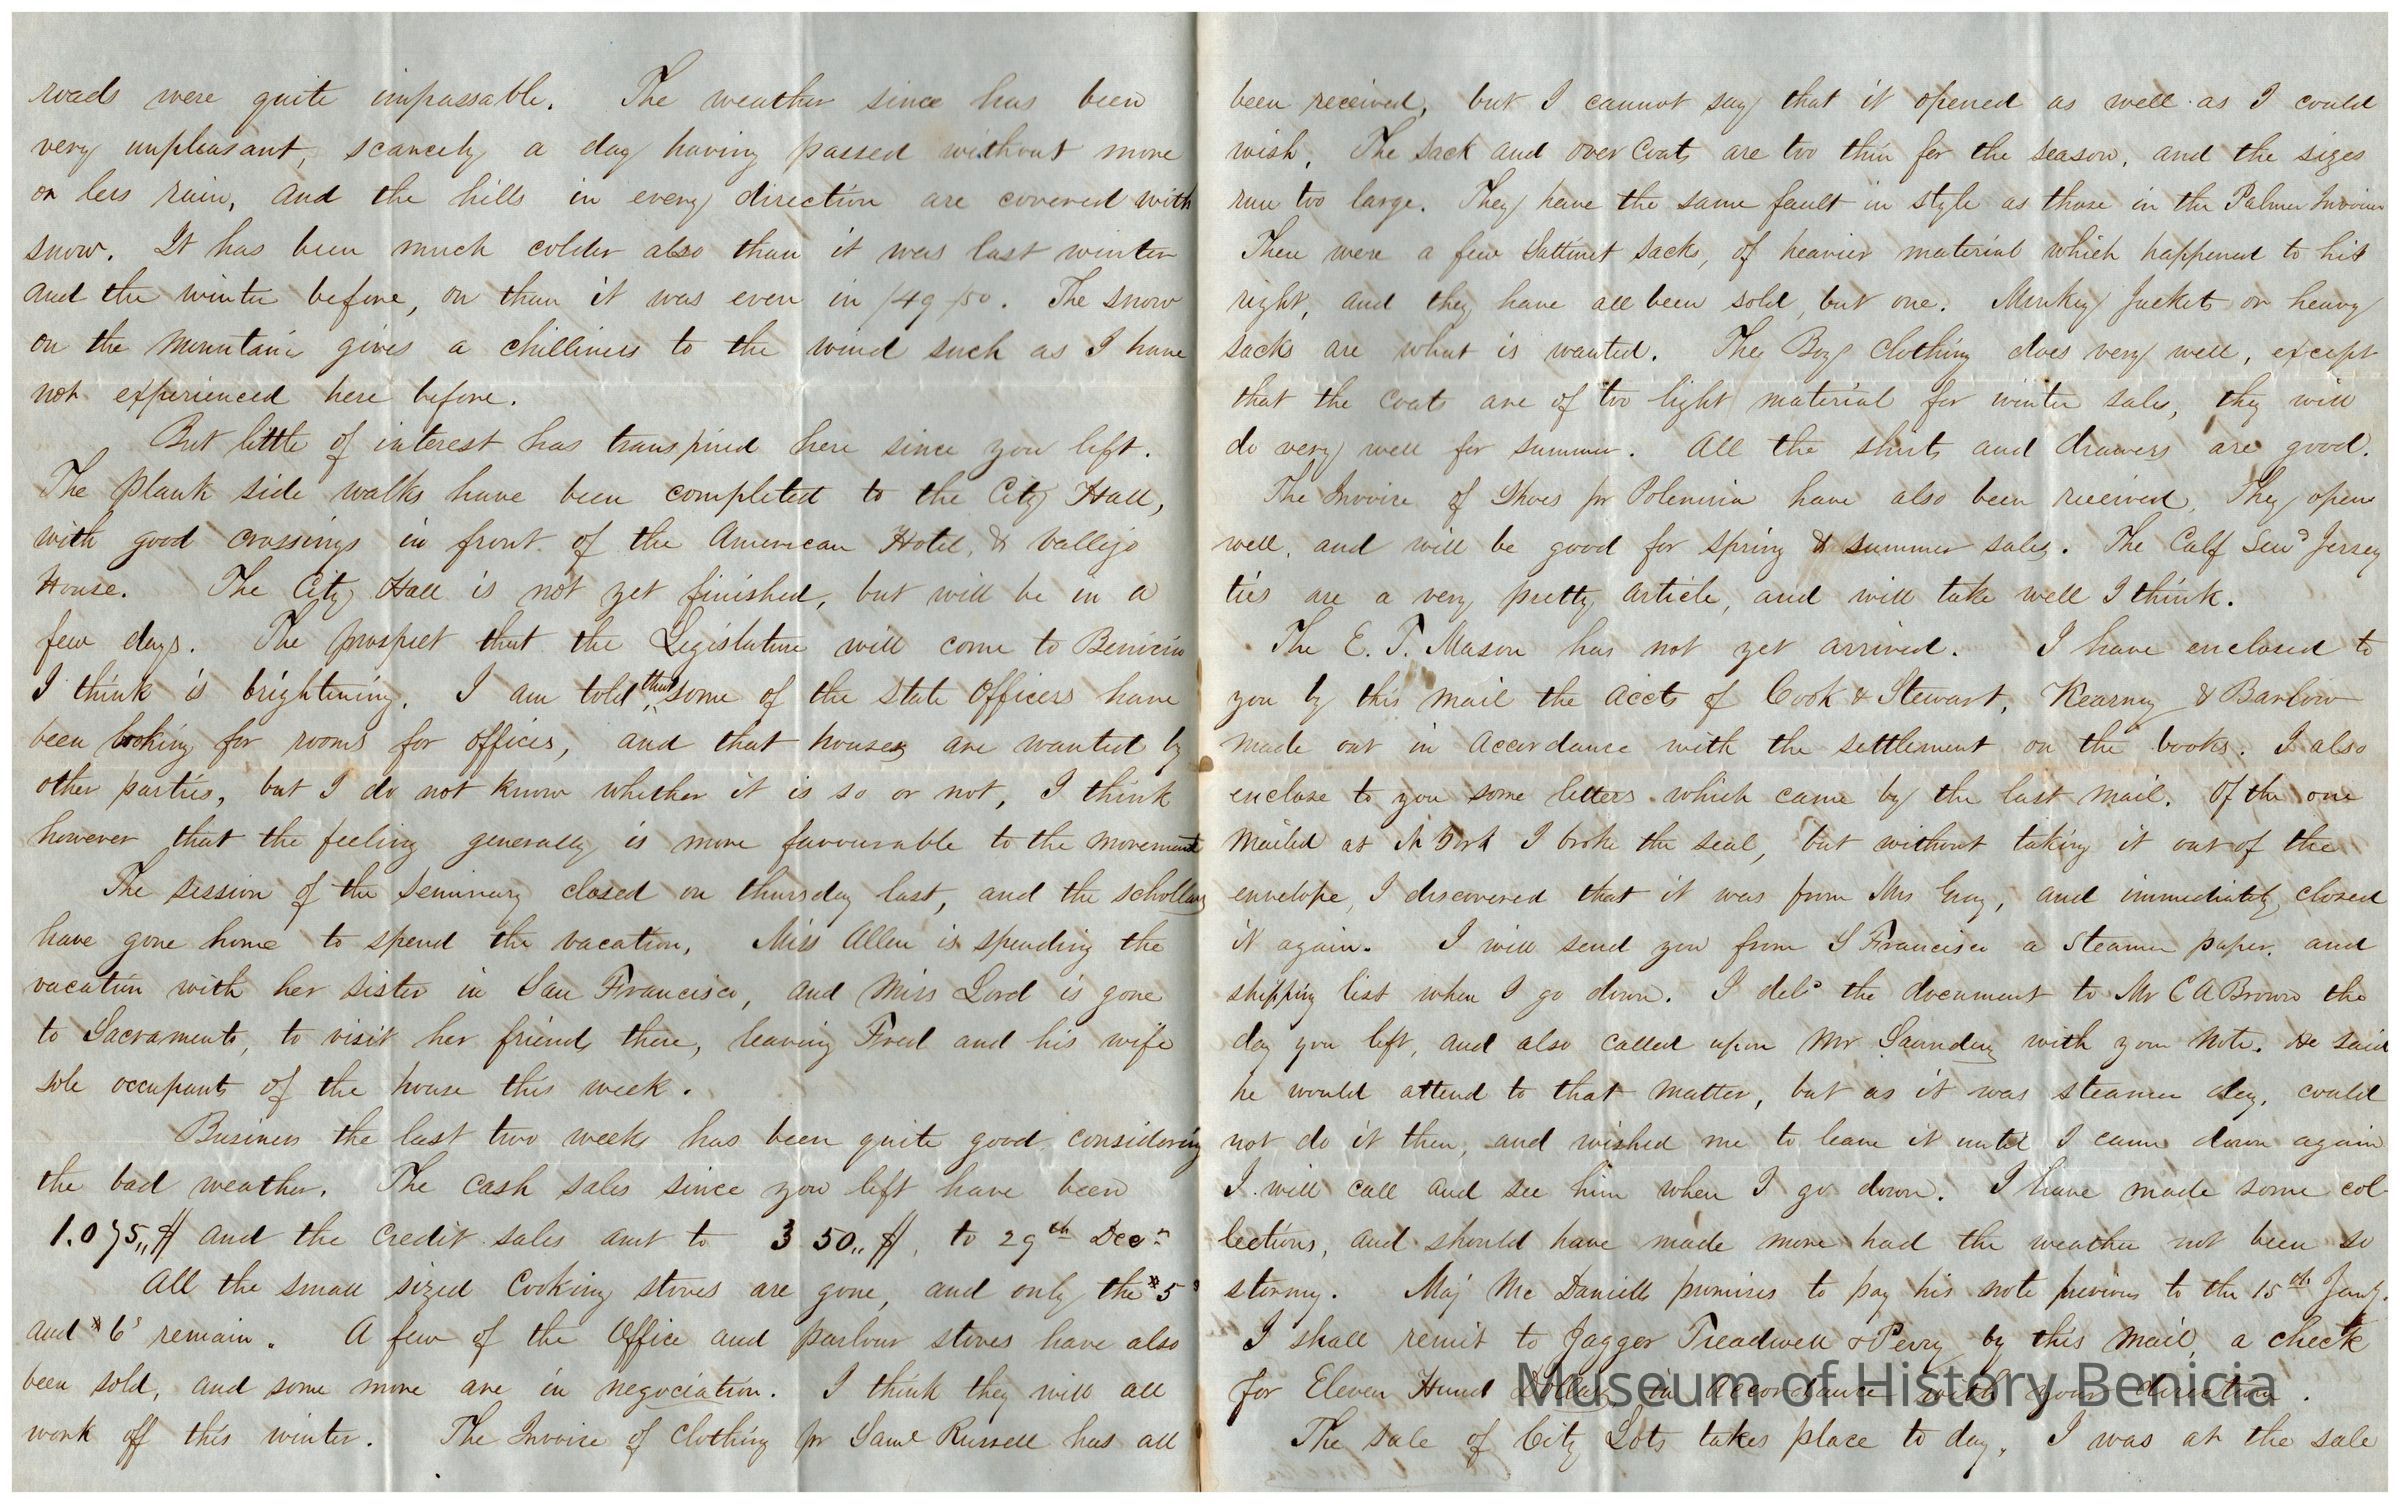 roads were quite impassable. The weather since has been
very unpleasant, scarcely a day having passed without more
or less rain, and the hills in every direction are covered with
snow. It has been much colder also than it was last winter
and the winter before, or than it was even in /49 /50. The snow
on the mountains gives a chilliness to the wind such as I have
not experienced here before.
But little of interest has transpired here since you left.
The plank side walks have been completed to the City Hall,
with good crossings in front of the American Hotel, & Vallejo
House. The City Hall is not yet finished, but will be in a
few days. The prospect that the Legislature will come to Benicia
I think is brightening. I am told that some of the State Officers have
been looking for rooms for offices, and that houses are wanted by
other parties, but I do not know whether it is so or not, I think
however that the feeling generally is more favourable to the movement
The session of the Seminary closed on thursday last, and the schollars
have gone home to spend the vacation. Miss Allen is spending the
vacation with her sister in San Francisco, and Miss Lord is gone
to Sacramento, to visit her friends there, leaving Fred and his wife
sole occupants of the house this week.
Business the last two weeks has been quite good considering
the bad weather. The cash sales since you left have been
1.075,,$ and the credit sales amt to 350,,$, to 29th Decr
All the small sized Cooking stoves are gone, and only the #5s
and #6s remain. A few of the Office and parlour stoves have also
been sold, and some more are in negociation. I think they will all
work off this winter. The Invoice of Clothing pr Saml Russell has all
been received, but I cannot say that it opened as well as I could
wish. The Sack and over Coats are too thin for the season, and the sizes
run too large. They have the same fault in style as those in the Palmer Invoice
There were a few Sattinet Sacks, of heavier material which happened to hit
right, and they have all been sold but one. Monkey Jackets or heavy
sacks are what is wanted. The Boys Clothing does very well, except
that the coats are of too light material for winter sales, they will
do very well for summer. All the shirts and drawers are good.
The Invoice of Shoes pr Polinisia have also been received. They open
well, and will be good for spring & summer sales. The Calf Sewd Jersey
ties are a very pretty article, and will take well I think.
The E. T. Mason has not yet arrived. I have enclosed to
you by this mail the accts of Cook & Stewart, Kearney & Barlow
made out in accordance with the settlement on the books. I also
enclose to you some letters which came by the last mail. Of the one
mailed at N York I broke the seal, but without taking it out of the
envelope, I discovered that it was from Mrs Gray, and immediately closed
it again. I will send you from S Francisco a Steamer paper, and
shipping list when I go down. I deld the document to Mr C A Brown the
day you left, and also called upon Mr Saunders with your note. He said
he would attend to that matter, but as it was steamer day, could
not do it then, and wished me to leave it until I came down again
I will call and see him when I go down. I have made some col-
lections, and should have made more had the weather not been so
stormy. Maj Mc Daniells promises to pay his note previous to the 15th Jany.
I shall remit to Jagger Treadwell & Perry by this mail, a check
for Eleven Hund Dollars in accordance with your direction.
The sale of City Lots takes place to day. I was at the sale
Museum of History Benicia